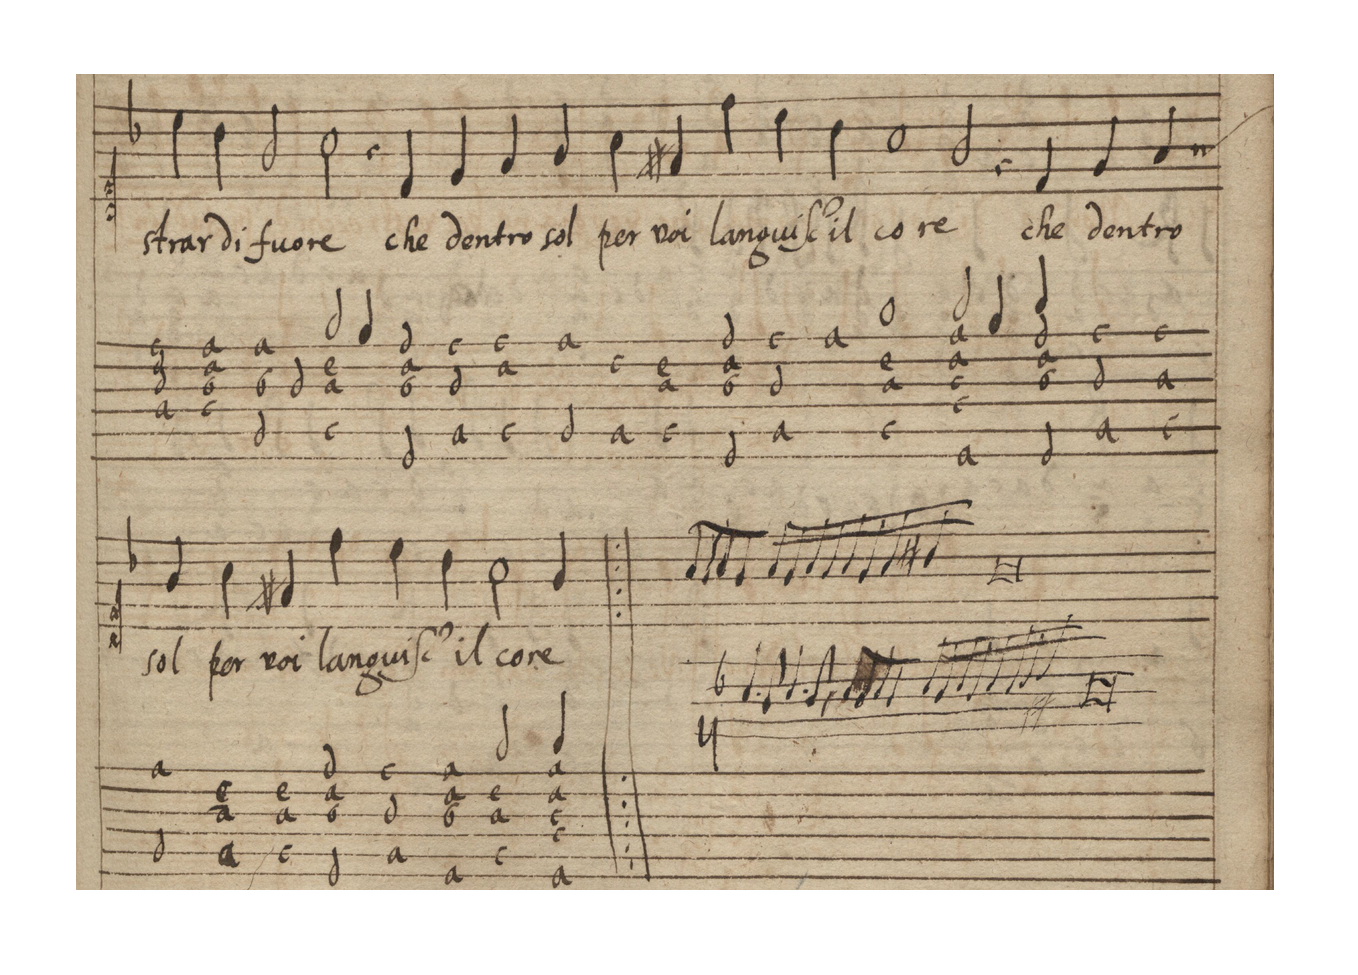 strar di fuore che dentro sol per voi languisc' il co re che dentro
c a a d c c a d c a a d c c
d a e a a c e a e a a
d b b d a b d a b d a c b d a
a c c
d c a c d a c a c a c
d d a d
sol per voi languisc' il core
a d c a a
e e a a e a
a a b d b a c
c
d a c a c
d a a